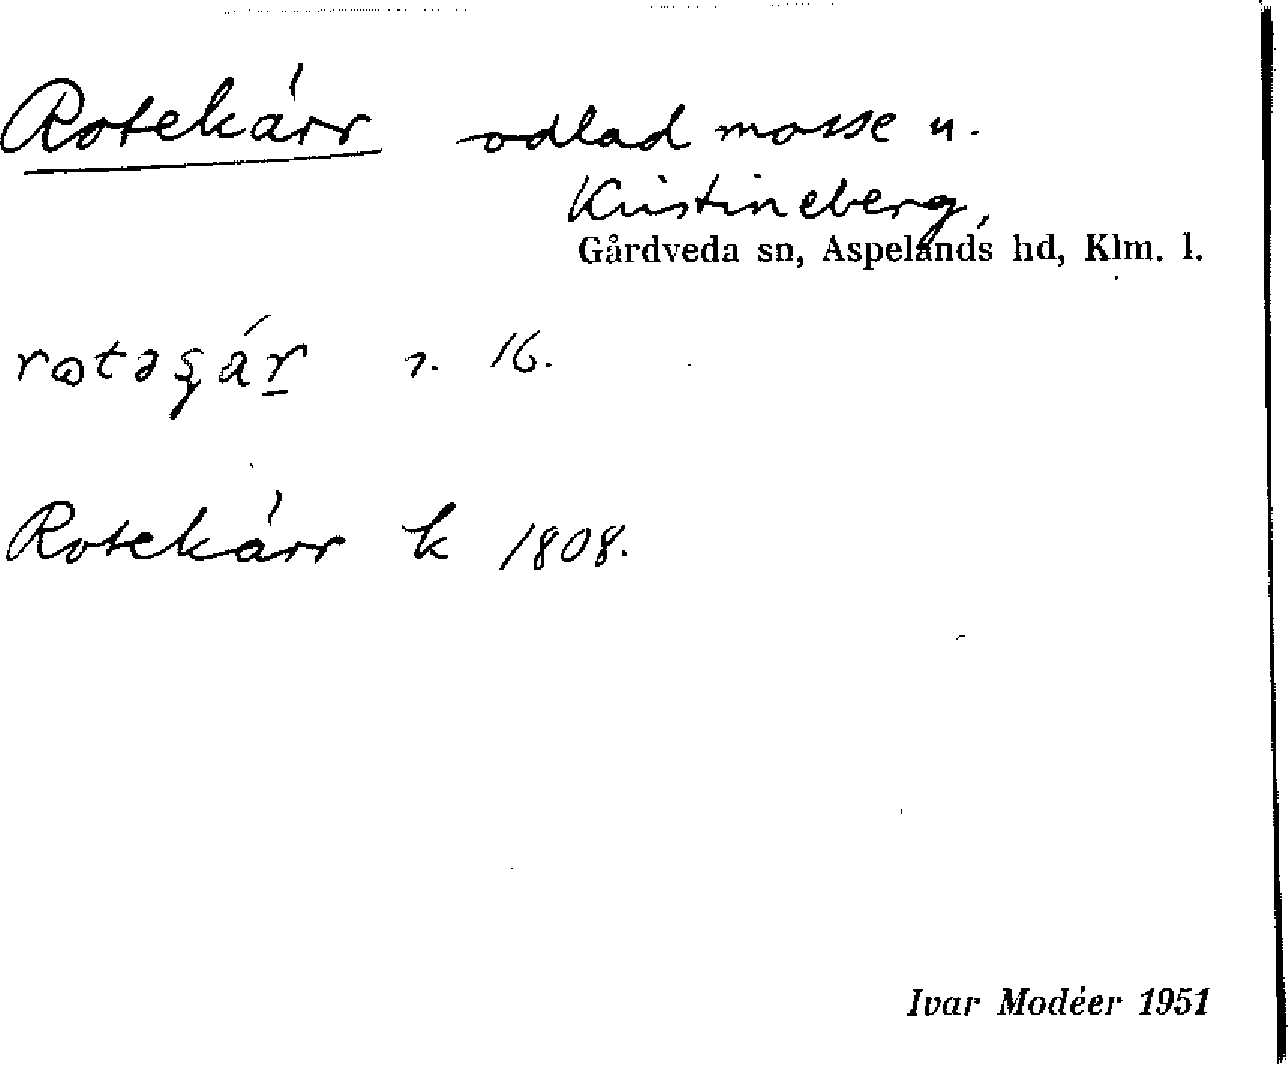 Rotekärr odlad mosse u.
Kristineberg,
Gårdveda sn, Aspelands hd, Klm. l.
16.
Rotekärr k 1808.
Ivar Modéer 1951